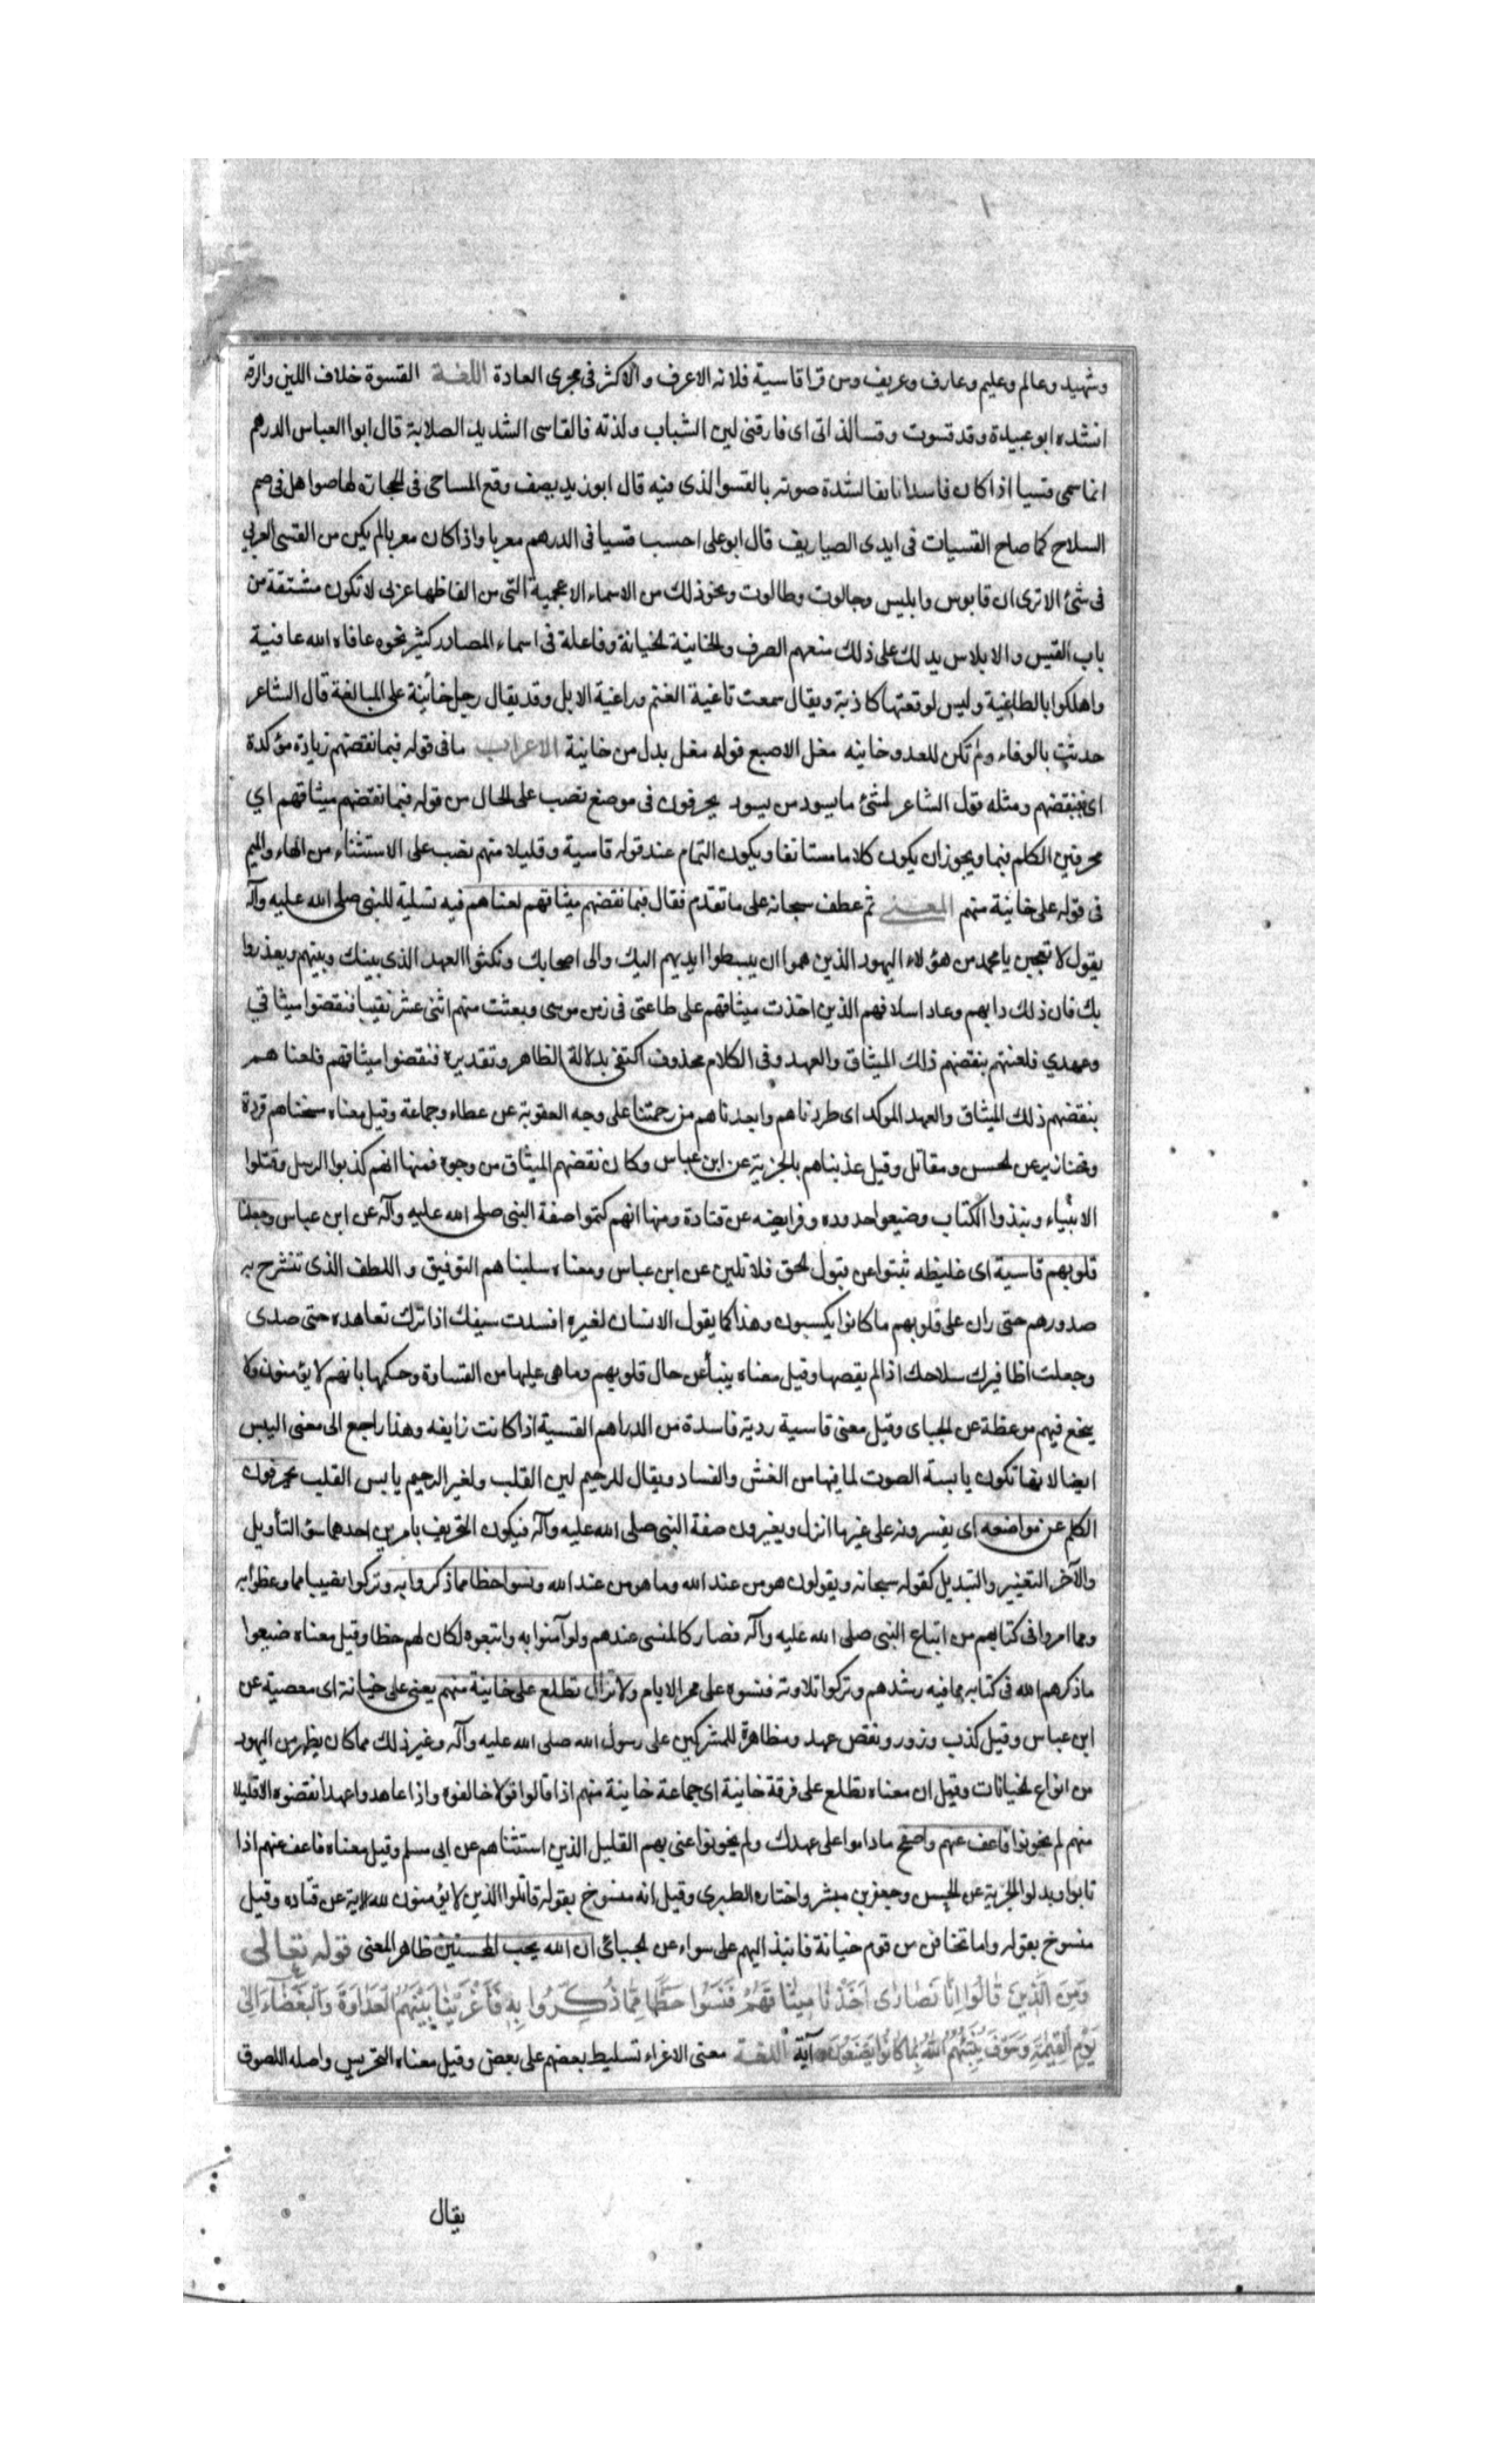 وشهيد وعالم وعليم وعارف وعريف ومن قرا قاسية فلانه الاعرف والاكثر فى مجرى العادة اللغة القسوة خلاف اللين والرقة
انشده ابو عبيدة وقد قسوت وقسا لذاتى اى فارقنى لين الشباب ولذته فالقاسى الشديد الصلابة قال ابوا العباس الدرهم
انما سمى قسيا اذا كان فاسدا نايفا لشدة صوته بالقسو الذى فيه قال ابو زبيد يصف وقع المساحى فى الحجارة لها صواهل فى صم
السلاح كما صاح القسيات فى ايدى الصياريف قال ابوعلى احسب قسيا فى الدرهم معربا واذا كان معربا لم يكن من القسى العربي
فى شئ الا ترى ان قابوس وابليس وجالوت وطالوت ونحو ذلك من الاسماء الاعجمية التى من الفاظها عربى لا تكون مشتقة من
باب القبس والابلاس يدلك على ذلك منعهم الصرف والخاينة الخيانة وفاعلة فى اسماء المصادر كثير نحوه عافاه الله عافية
واهلكوا بالطاغية وليس لوقعتها كاذبة ويقال سمعت ثاغية الغنم وراغية الابل وقد يقال رجل خائنة على المبالغة قال الشاعر
حدثت بالوفاء ولم تكن للعد وخاينه مغل الاصبع قوله مغل بدل من خاينة الاعراب ما فى قوله فبما نقضهم زيادة مؤكدة
اى فبنقضهم ومثله قول الشاعر لشئ ما يسود من يسود يحرفون فى موضع نصب على الحال من قوله فبما نقضهم ميثاقهم اي
محرفين الكلم فيما ويجوز ان يكون كلاما مستانفا ويكون التمام عند قوله قاسية وقليلا منهم نصب على الاستثناء من الهاء والميم
فى قوله على خاينة منهم المعنى ثم عطف سبحانه على ما تقدم فقال فبما نقضهم ميثاقهم لعناهم فيه تسلية للنبى صلى الله عليه وآله
يقول لا تعجبن يا محمد من هؤلاء اليهود الذين هموا ان يبسطوا ايديهم اليك والى اصحابك ونكثوا العهد الذى بينك وبينهم ويغدروا
بك فان ذلك دابهم وعاد اسلافهم الذين اخذت ميثاقهم على طاعتى فى زمن موسى وبعثت منهم اثنى عشر نقيبا فنقضوا ميثاقي
وعهدي فلعنتهم بنقضهم ذلك الميثاق والعهد وفى الكلام محذوف اكتفى بدلالة الظاهر وتقديره فنقضوا ميثاقهم فلعناهم
بنقضهم ذلك الميثاق والعهد الموكد اى طردناهم وابعدناهم من رحمتنا على وجه العقوبة عن عطاء وجماعة وقيل معناه مسخناهم قردة
وخنازير عن الحسن ومقاتل وقيل عذبناهم بالجزية عن ابن عباس وكان نقضهم الميثاق من وجوه فمنها انهم كذبوا الرسل وقتلوا
الانبياء ونبذوا الكتاب وضيعوا حدوده وفرايضه عن قتادة ومنها انهم كتموا صفة النبى صلى الله عليه وآله عن ابن عباس وجعلنا
قلوبهم قاسية اى غليظه ثبتوا عن قبول الحق فلا تلين عن ابن عباس ومعناه سلبناهم التوفيق واللطف الذى تنشرح به
صدورهم حتى ران على قلوبهم ما كانوا يكسبون وهذا كما يقول الانسان لغيره افسدت سيفك اذا ترك تعاهده حتى صدى
وجعلت اظافيرك سلاحك اذا لم يقصها وقيل معناه ينبأ عن حال قلوبهم وما هى عليها من القساوة وحكمها بانهم لا يؤمنون ولا
ينجع فيهم موعظة عن الجباى وقيل معنى قاسية ردية فاسدة من الدراهم القسية اذا كانت زايفه وهذا راجع الى معنى اليبس
ايضا لانها تكون يابسة الصوت لما فيها من الغش والفساد ويقال للرحيم لين القلب ولغير الرحيم يابس القلب يحرفون
الكلم عن مواضعه اى يفسرونه على غير ما انزل ويغيرون صفة النبى صلى الله عليه وآله فيكون التحريف بامرين احدهما سوء التأويل
والآخر التغيير والتبديل كقوله سبحانه ويقولون هو من عند الله وما هو من عند الله ونسوا حظا مما ذكروا به وتركوا نصيبا مما وعظوا به
ومما امروا فى كتابهم من اتباع النبى صلى الله عليه وآله فصار كالمنسى عندهم ولو آمنوا به واتبعوه لكان لهم حظا وقيل معناه ضيعوا
ما ذكرهم الله فى كتابه مما فيه رشدهم وتركوا تلاوته فنسوه على ممر الايام ولا تزال تطلع على خاينة منهم يعنى على خيانة اى معصية عن
ابن عباس وقيل كذب وزور ونقض عهد ومظاهرة للمشركين على رسول الله صلى الله عليه وآله وغير ذلك مما كان يظهر من اليهود
من انواع الخيانات وقيل ان معناه تطلع على فرقة خاينة اى جماعة خاينة منهم اذا قالوا قولا خالفوه واذا عاهدوا عهدا نقضوه الا قليلا
منهم لم يخونوا فاعف عنهم واصفح ماداموا على عهدك ولم يخونوا عنى بهم القليل الذين استثناهم عن ابى مسلم وقيل معناه فاعف عنهم اذا
تابوا وبدلوا الجزية عن الحسن وجعفر بن مبشر واختاره الطبرى وقيل انه منسوخ بقوله قاتلوا الذين لا يؤمنون لله الاية عن قتاده وقيل
منسوخ بقوله واما تخافن من قوم خيانة فانبذ اليهم على سواء عن الجبائى ان الله يحب المحسنين ظاهر المعنى قوله تعالى
وَمِنَ الَّذِينَ قَالُوا إِنَّا نَصَارَى أَخَذْنَا مِيثَاقَهُمْ فَنَسُوا حَظًّا مِمَّا ذُكِّرُوا بِهِ فَأَغْرَيْنَا بَيْنَهُمُ الْعَدَاوَةَ وَالْبَغْضَاءَ إِلَى
يَوْمِ الْقِيَمَةِ وَسَوْفَ يُنَبِّئُهُمُ اللَّهُ بِمَا كَانُوا يَصْنَعُونَ آية اللغة معنى الاغراء تسليط بعضهم على بعض وقيل معناه التحريس واصله اللصوق
يقال